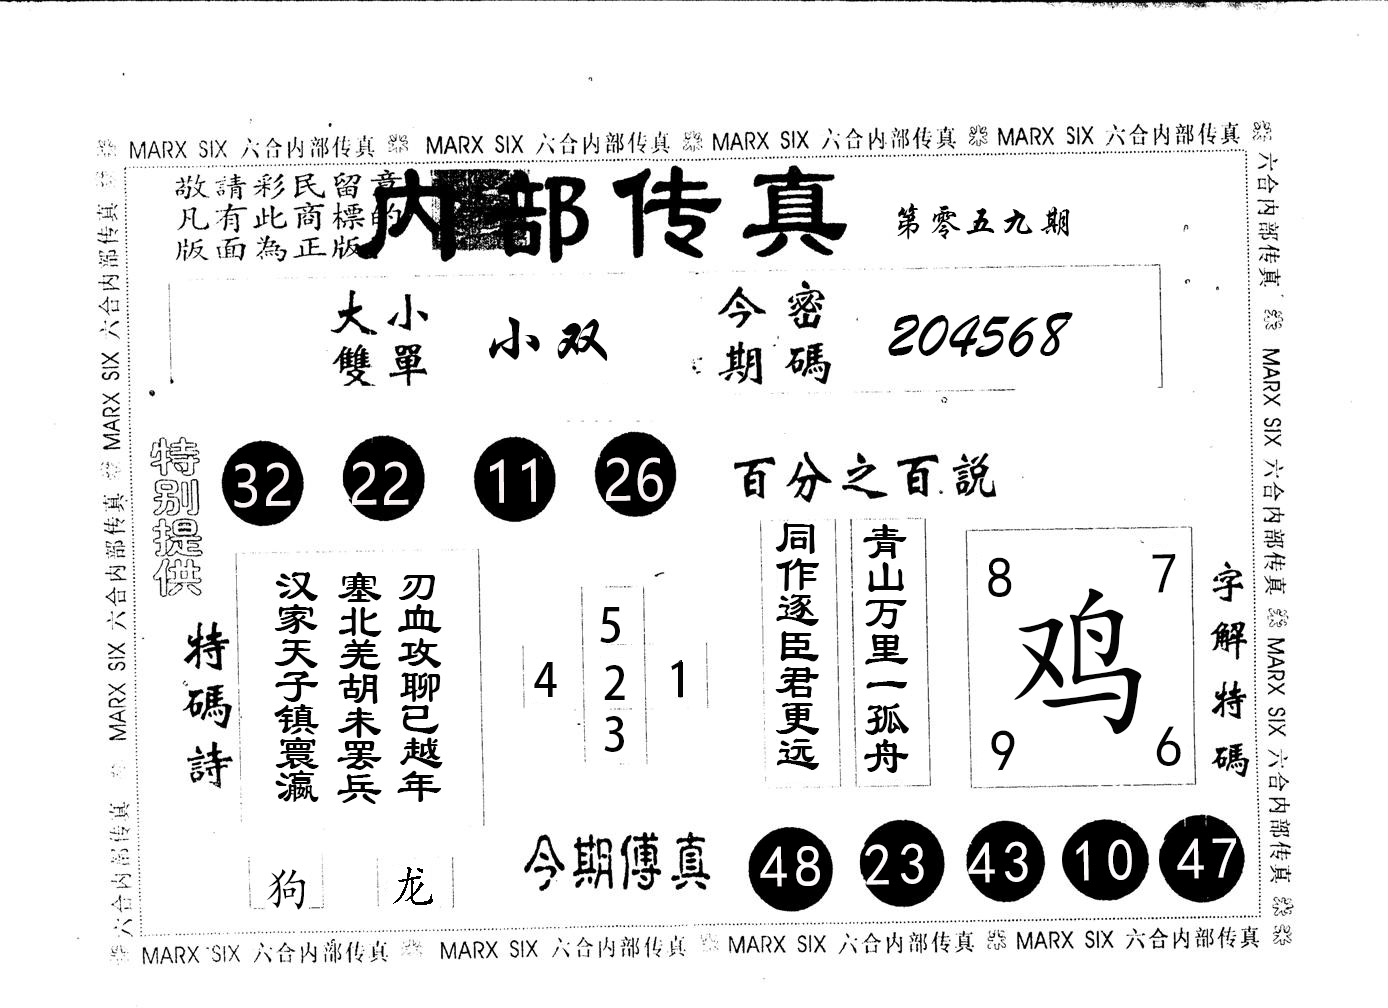 MARX SIX 六合内部传真 MARX SIX 六合内部传真 MARX SIX 六合内部传真 MARX SIX 六合内部传真
敬請彩民留意
凡有此商標的
版面為正版
内部传真
第零五九期
大小
雙單
小双
今密
期碼
204568
特别提供
32 22 11 26
百分之百説
特碼詩
刃血攻聊已越年
塞北羌胡未罢兵
汉家天子镇寰瀛
5
4 2 1
3
青山万里一孤舟
同作逐臣君更远
8 7
鸡
9 6
字解特碼
狗 龙
今期傳真
48 23 43 10 47
六合内部传真 MARX SIX 六合内部传真 MARX SIX 六合内部传真
六合内部传真 MARX SIX 六合内部传真 MARX SIX 六合内部传真
MARX SIX 六合内部传真 MARX SIX 六合内部传真 MARX SIX 六合内部传真 MARX SIX 六合内部传真